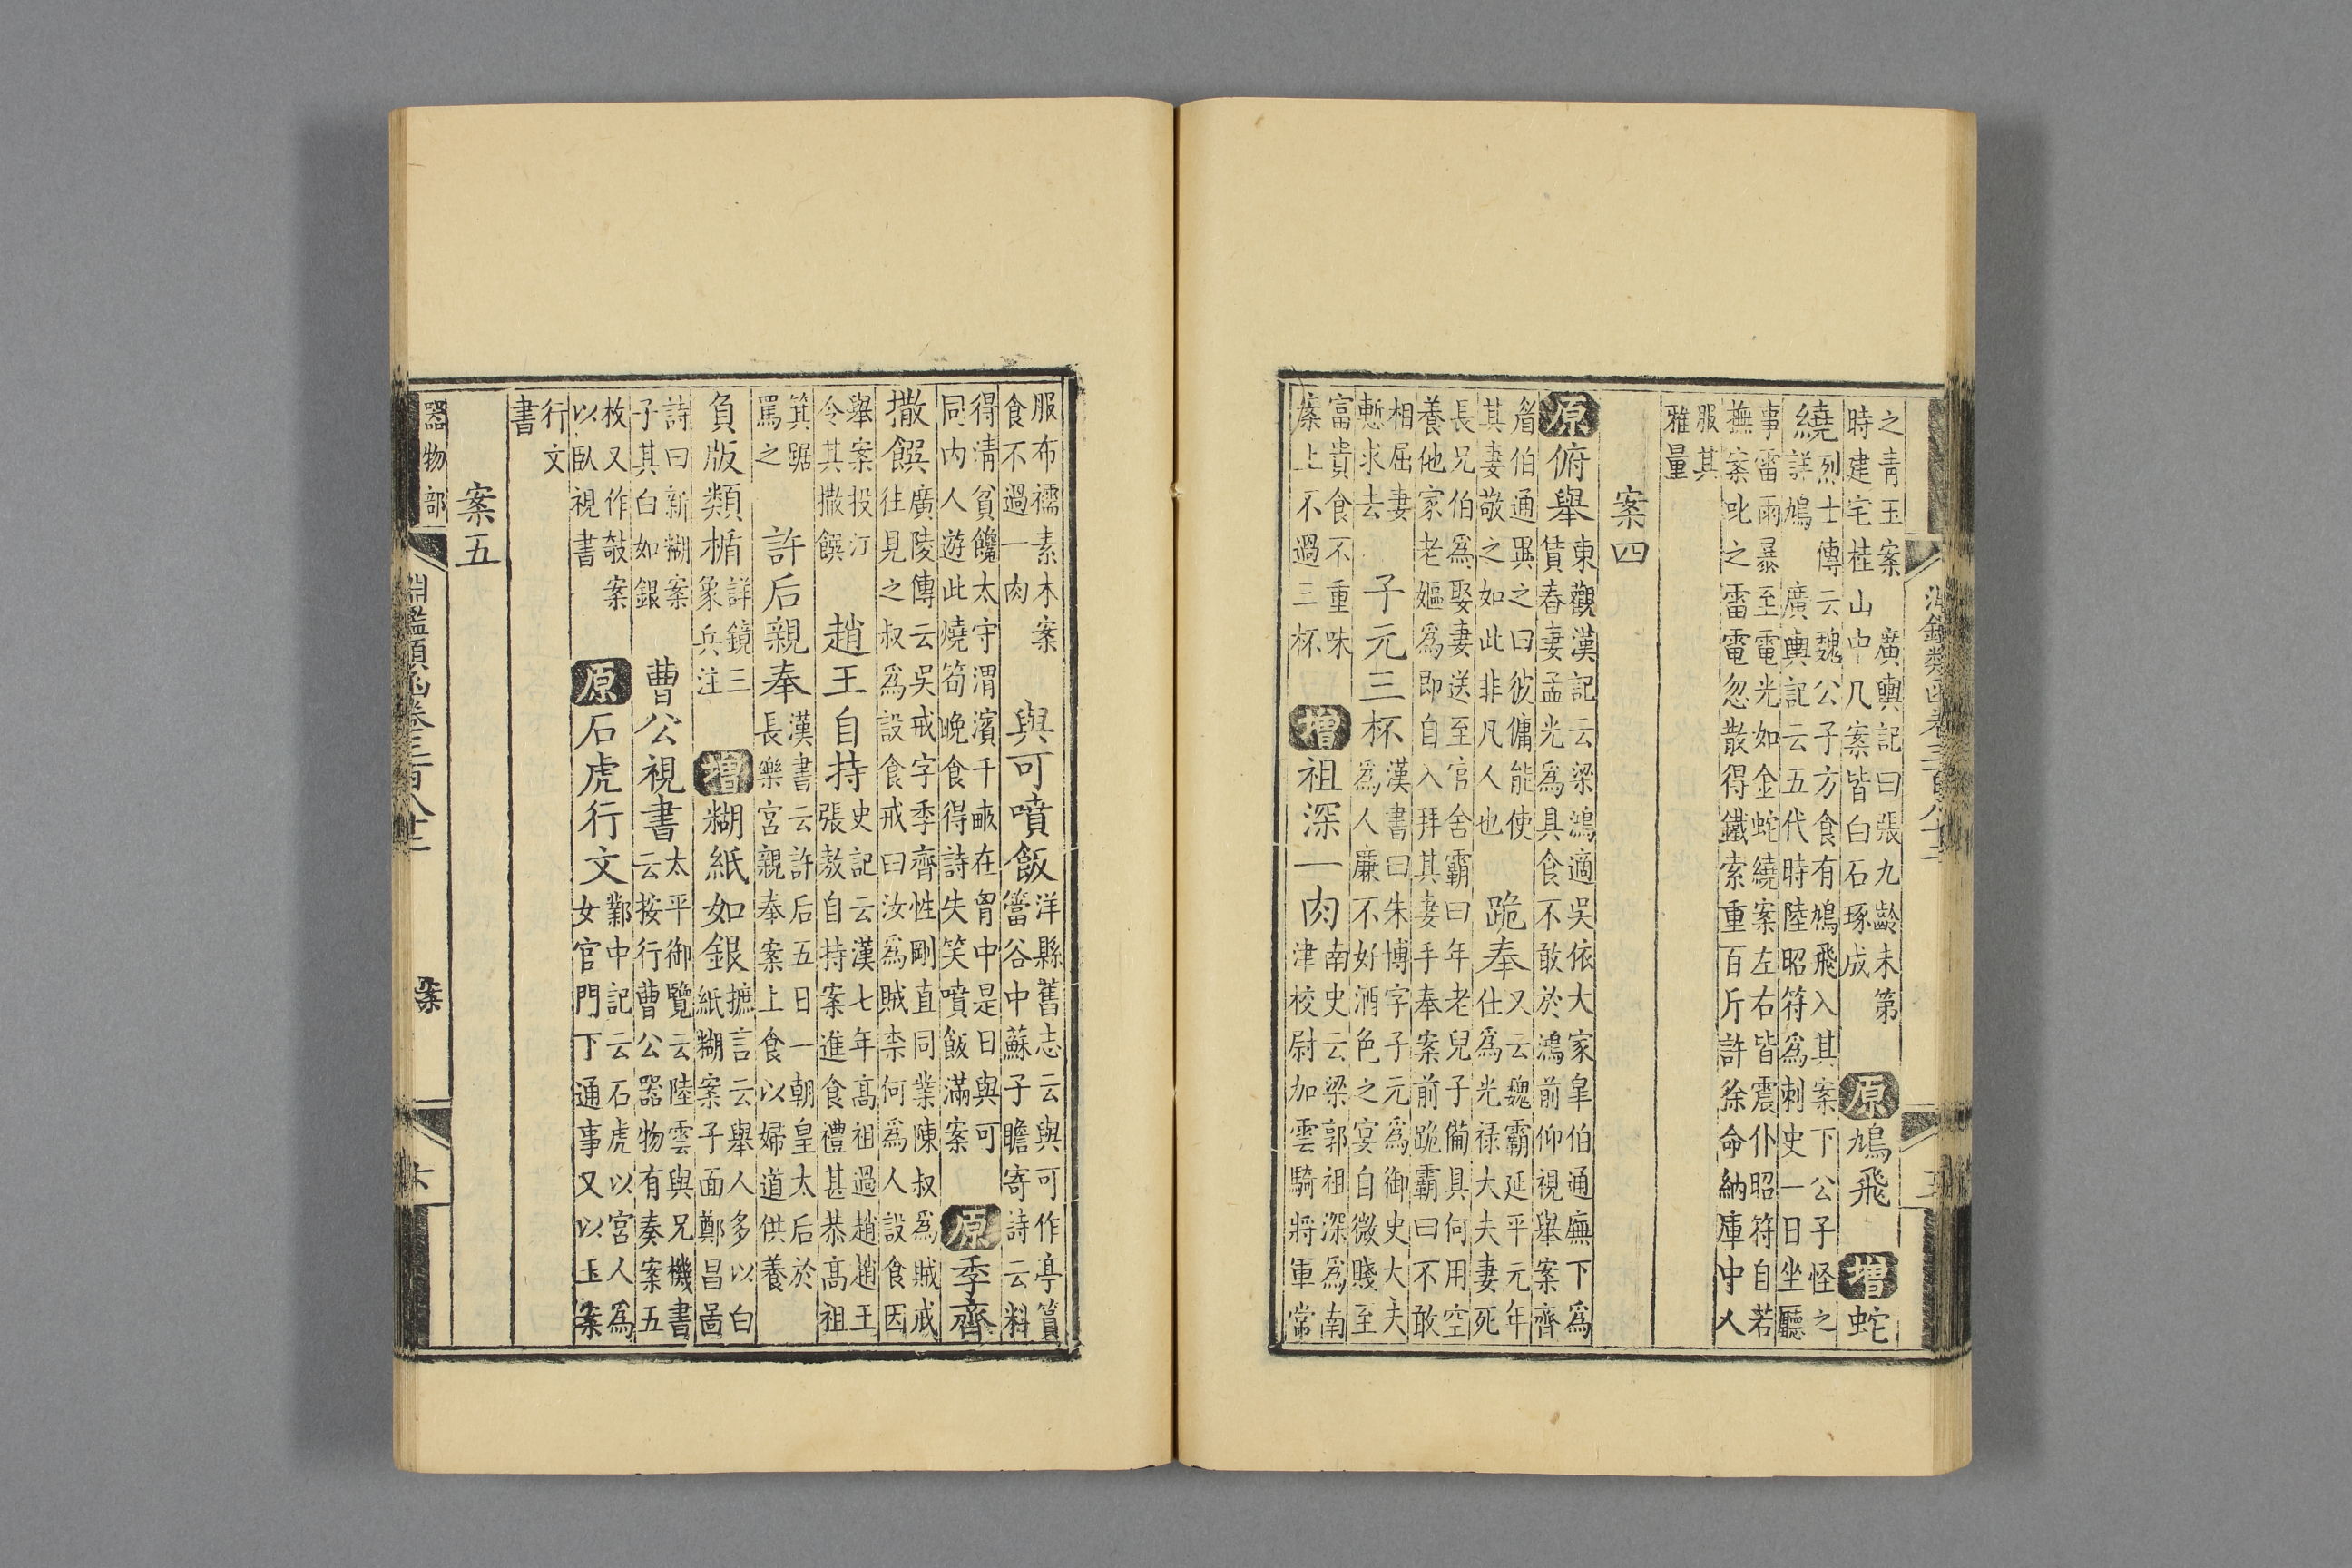 淵鑑類函卷三百八十二
之青玉案 廣輿記曰張九齡未第
時建宅桂山中几案皆白石琢成 原 鳩飛 增 蛇
繞 烈士傳云魏公子方食有鳩飛入其案下公子怪之
詳鳩 廣輿記云五代時陸昭符爲刺史一日坐廳
事雷雨暴至電光如金蛇繞案左右皆震仆昭符自若
撫案叱之雷電忽散得鐵索重百斤許徐命納庫中人
服其
雅量
案四
原 俯舉 東觀漢記云梁鴻適吳依大家臯伯通廡下爲
賃舂妻孟光爲具食不敢於鴻前仰視舉案齊
眉伯通異之曰彼傭能使
其妻敬之如此非凡人也 跪奉 又云魏霸延平元年
仕爲光禄大夫妻死
長兄伯爲娶妻送至官舍霸曰年老兒子備具何用空
養他家老嫗爲即自入拜其妻手奉案前跪霸曰不敢
相屈妻
慙求去 子元三杯 漢書曰朱博字子元爲御史大夫
爲人廉不好酒色之宴自微賤至
富貴食不重味
案上不過三杯 增 祖深一肉 南史云梁郭祖深爲南
津校尉加雲騎將軍常
服布襦素木案
食不過一肉 與可噴飯 洋縣舊志云與可作亭篔
簹谷中蘇子瞻寄詩云料
得清貧饞太守渭濱千畝在胷中是日與可
同内人遊此燒筍晚食得詩失笑噴飯滿案 原 季齊
撒饌 廣陵傳云吳戒字季齊性剛直同業陳叔爲賊戒
往見之叔爲設食戒曰汝爲賊柰何爲人設食因
舉案投江
令其撒饌 趙王自持 史記云漢七年髙祖過趙趙王
張敖自持案進食禮甚恭髙祖
箕踞
罵之 許后親奉 漢書云許后五日一朝皇太后於
長樂宮親奉案上食以婦道供養
負版類楯 詳鏡三
象兵注 增 糊紙如銀 摭言云舉人多以白
紙糊案子面鄭昌啚
詩曰新糊案
子其白如銀 曹公視書 太平御覽云陸雲與兄機書
云按行曹公器物有奏案五
枚又作攲案
以臥視書 原 石虎行文 鄴中記云石虎以宮人爲
女官門下通事又以玉案
行文
書
案五
器物部 淵鑑類函卷三百八十二 案 六